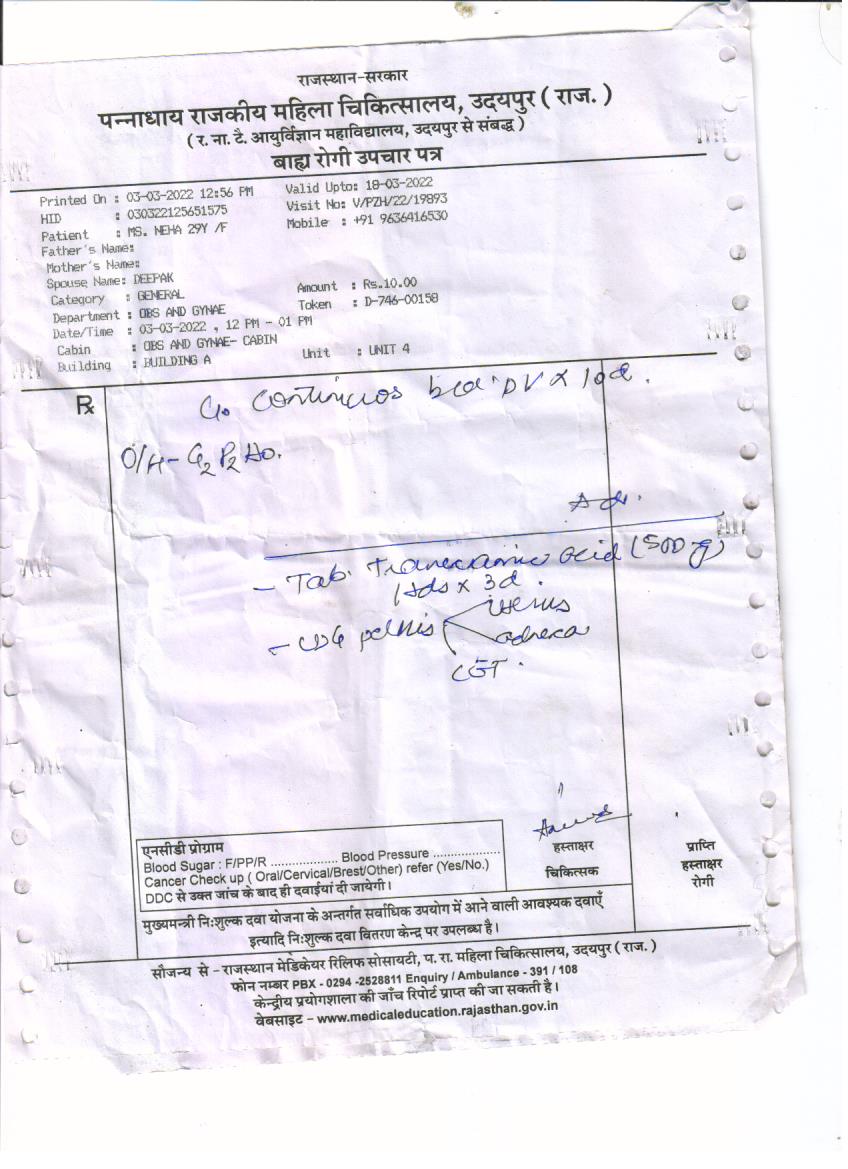 राजस्थान-सरकार
पन्नाधाय राजकीय महिला चिकित्सालय, उदयपुर ( राज. )
( र. ना. टै. आयुर्विज्ञान महाविद्यालय, उदयपुर से संबद्ध )
बाह्य रोगी उपचार पत्र
Printed On : 03-03-2022 12:56 PM Valid Upto: 18-03-2022
HID : 030322125651575 Visit No: V/PZH/22/19893
Patient : MS. NEHA 29Y /F Mobile : +91 9636416530
Father's Name:
Mother's Name:
Spouse Name: DEEPAK
Category : GENERAL Amount : Rs.10.00
Department : OBS AND GYNAE Token : D-746-00158
Date/Time : 03-03-2022 , 12 PM - 01 PM
Cabin : OBS AND GYNAE- CABIN
Building : BUILDING A Unit : UNIT 4
Rx
C/o continuos DV x 10d.
O/H- G2 P2 A0.
Adv.
- Tab. tranexamic acid (500 g)
1tds x 3d.
- USG pelvis uterus
adnexa
हस्ताक्षर
चिकित्सक
प्राप्ति
हस्ताक्षर
रोगी
एनसीडी प्रोग्राम
Blood Sugar : F/PP/R .................... Blood Pressure ....................
Cancer Check up ( Oral/Cervical/Brest/Other) refer (Yes/No.)
DDC से उक्त जांच के बाद ही दवाईयां दी जायेगी।
मुख्यमन्त्री निःशुल्क दवा योजना के अन्तर्गत सर्वाधिक उपयोग में आने वाली आवश्यक दवाएँ
इत्यादि निःशुल्क दवा वितरण केन्द्र पर उपलब्ध है।
सौजन्य से – राजस्थान मेडिकेयर रिलिफ सोसायटी, प. रा. महिला चिकित्सालय, उदयपुर ( राज. )
फोन नम्बर PBX - 0294 -2528811 Enquiry / Ambulance - 391 / 108
केन्द्रीय प्रयोगशाला की जाँच रिपोर्ट प्राप्त की जा सकती है।
वेबसाइट – www.medicaleducation.rajasthan.gov.in